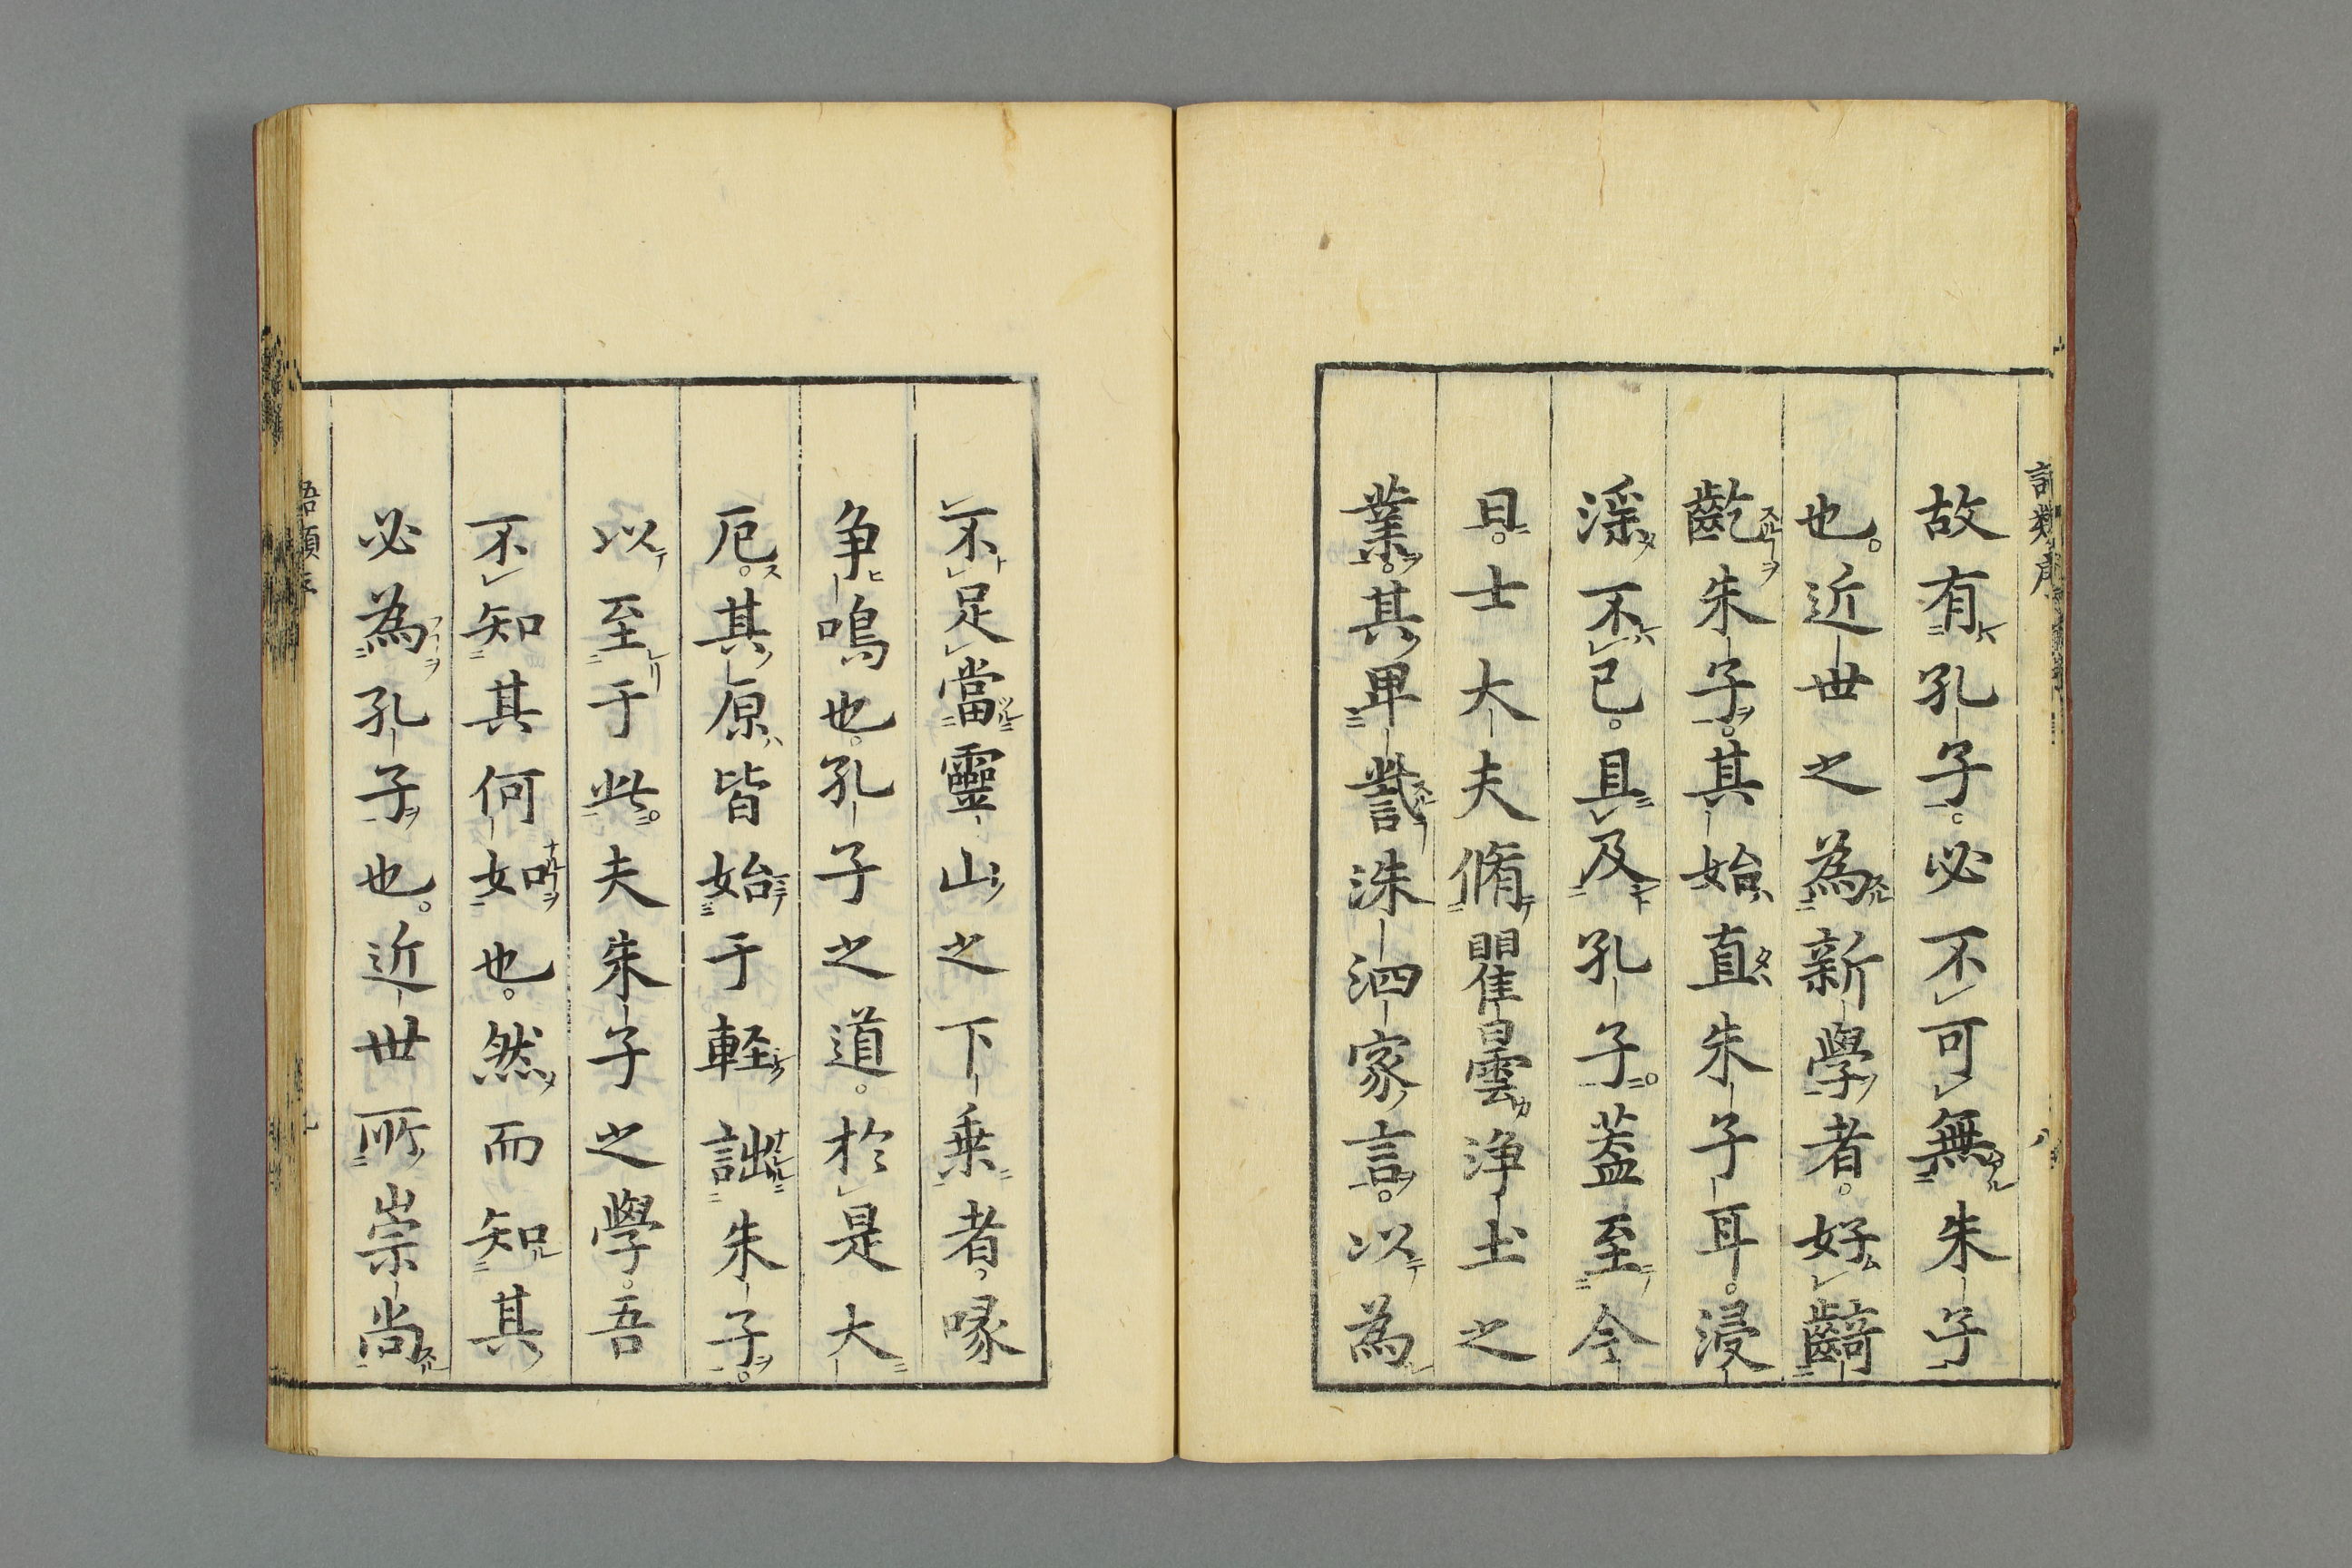 故有孔子。必不可無朱子
也。近世之為新學者。好齮
齕朱子。其始直朱子耳。浸
淫不已。具及孔子。蓋至今
日。士大夫脩瞿曇淨土之
業。其卑訾洙泗家言。以為
不足當靈山之下乗者。喙
争鳴也。孔子之道。於是大
厄。其原皆始于軽詘朱子。
以至于此。夫朱子之學。吾
不知其何如也。然而知其
必為孔子也。近世所崇尚